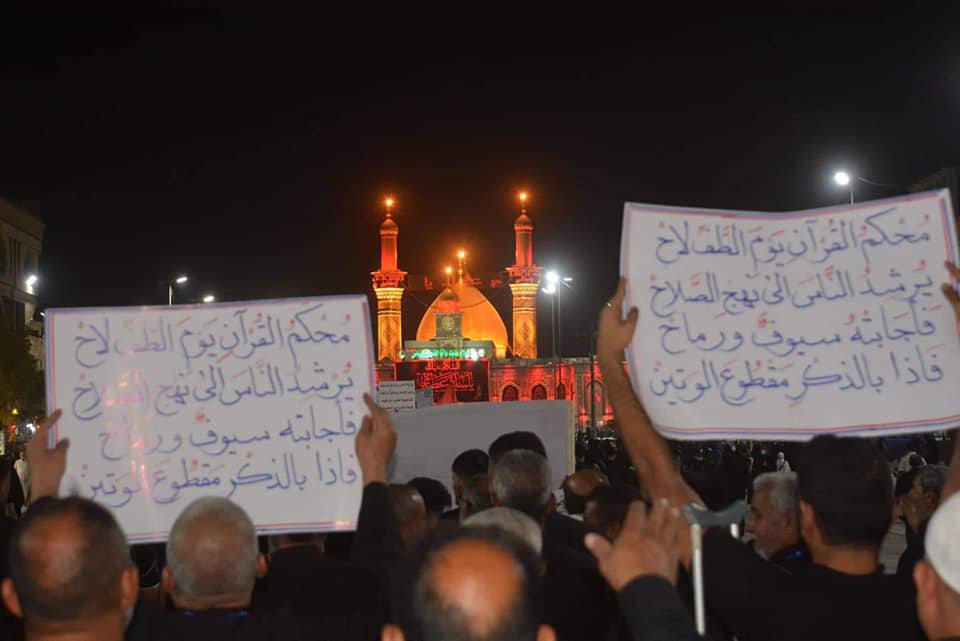 مُحكمُ القُرآنِ يَومَ الطَّفِّ لاحْ
يُرشدُ النَّاسَ الىٰ نهجِ الصَّلاحْ
فأجابتهُ سيوفٌ ورماحْ
فاذا بالذكرِ مقطوعُ الوتينْ
مُحكمُ القُرآنِ يَومَ الطَّفِّ لاحْ
يُرشدُ النَّاسَ الىٰ نهجِ الصَّلاحْ
فأجابتهُ سيوفٌ ورماحْ
فاذا بالذكرِ مقطوعُ الوتينْ